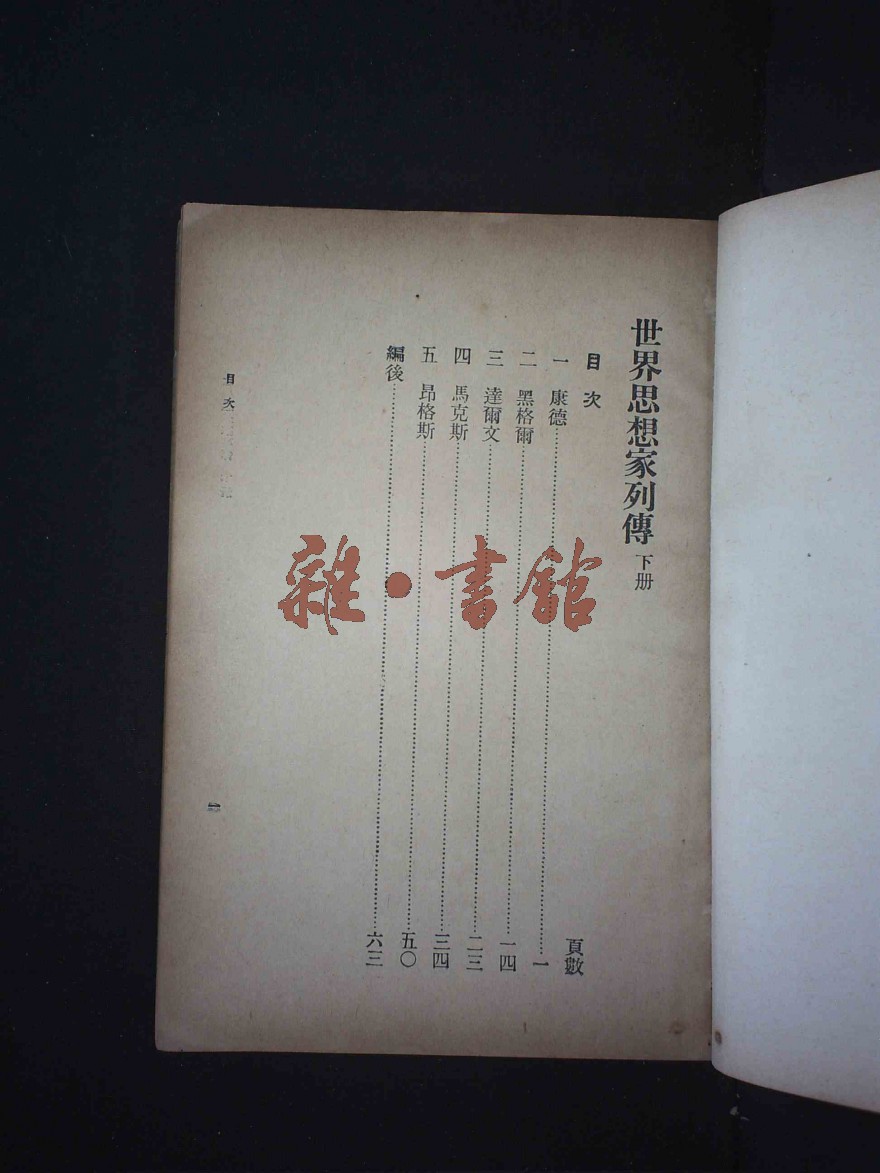 世界思想家列傳 下册
目次 頁數
一 康德………一
二 黑格爾………一四
三 達爾文………二三
四 馬克斯………三四
五 昂格斯………五〇
編後………六三
目次
一
雜·書館